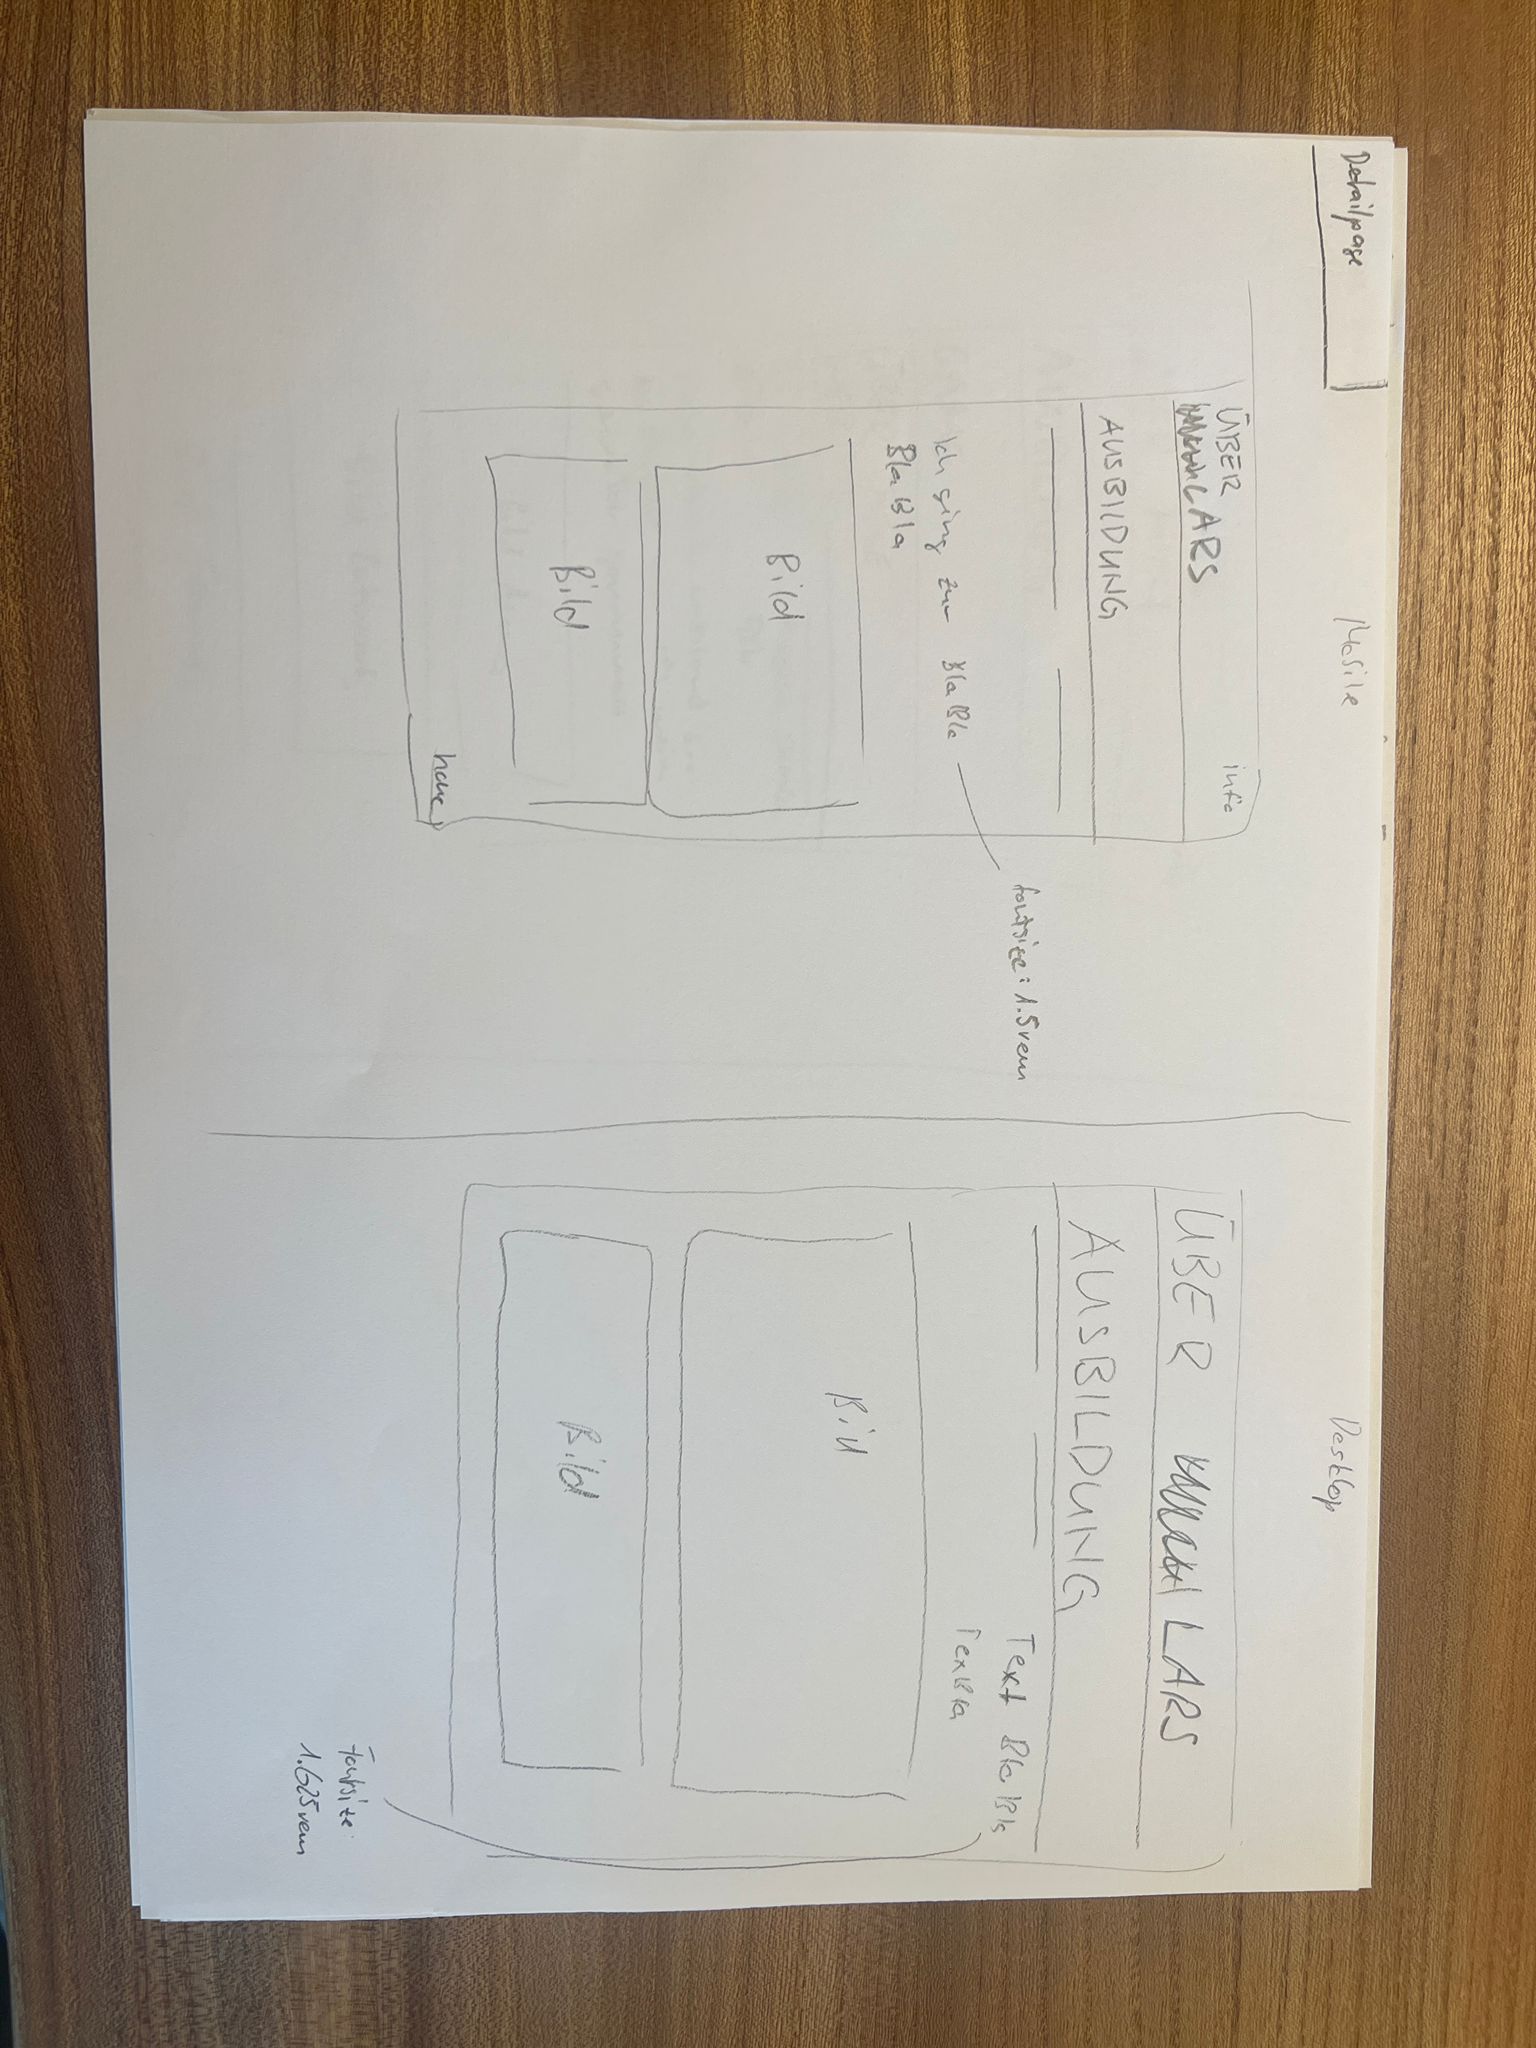 Detailpage
Mobile
Desktop
ÜBER
LARS
info
AUSBILDUNG
fontsize: 1.5rem
Ich ging zur BlaBla
Bla Bla
Bild
Bild
home
ÜBER LARS
AUSBILDUNG
Text Bla Bla
TexBla
Bild
Bild
Fontsize:
1.625rem